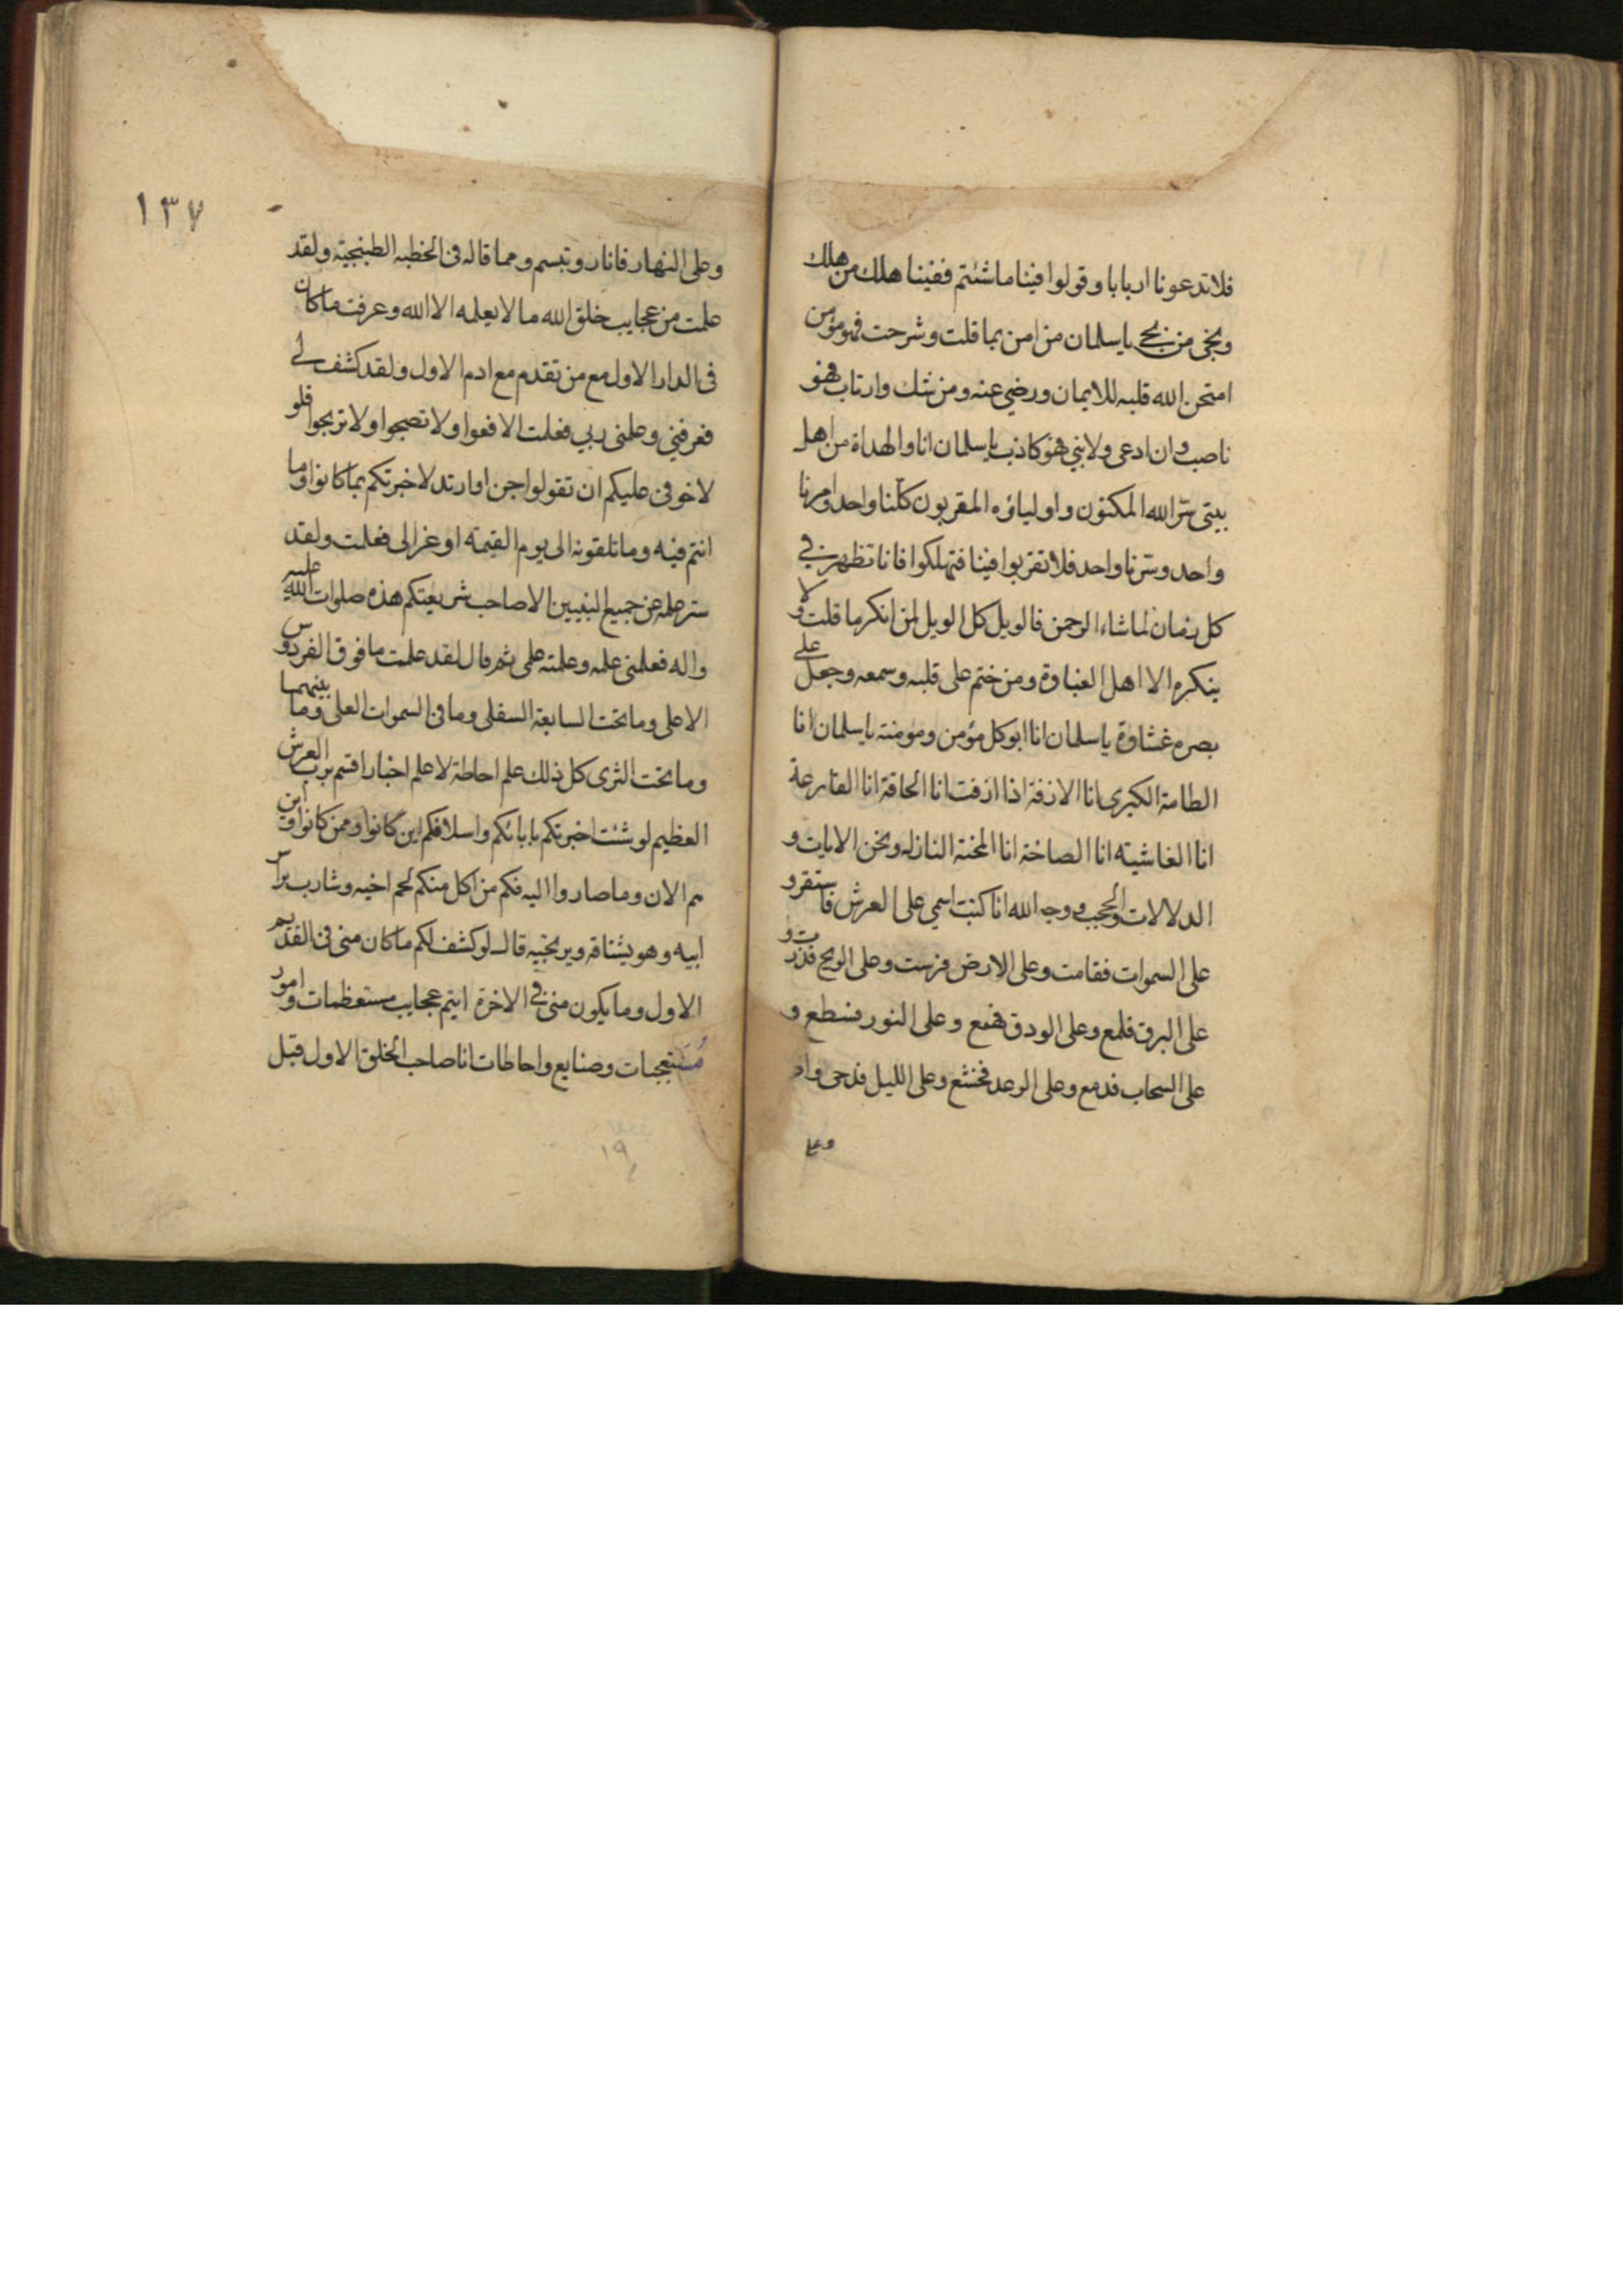 فلا تدعونا اربابا وقولوا فينا ما شئتم ففينا هلك من هلك
ونجى من نجى يا سلمان من امن بما قلت وشرحت فهو مؤمن
امتحن الله قلبه للايمان ورضي عنه ومن شك وارتاب فهو
ناصب وان ادعى ولايتي فهو كاذب يا سلمان انا والهداة من اهل
بيتى سر الله المكنون واولياؤه المقربون كلنا واحد وامرنا
واحد وسرنا واحد فلا تفرقوا فينا فتهلكوا فانا نظهر في
كل زمان لما شاء الرحمن فالويل كل الويل لمن انكر ما قلت ولا
ينكره الا اهل الغباوة ومن ختم على قلبه وسمعه وجعل على
بصره غشاوة يا سلمان انا ابو كل مؤمن ومؤمنة يا سلمان انا
الطامة الكبرى انا الازفة اذا ازفت انا الحاقة انا القارعة
انا الغاشية انا الصاخة انا المحنة النازله ونحن الايات و
الدلالات والحجب ووجه الله انا كتبت اسمي على العرش فاستقر و
على السموات فقامت وعلى الارض فرست وعلى الريح فذرت و
على البرق فلمع وعلى الودق فهمع وعلى النور فسطع و
على السحاب فدمع وعلى الرعد فخشع وعلى الليل فدجى واظ
وعلى
١٣٧
وعلى النهار فانار وتبسم ومما قاله فى الخطبه الطتنجية ولقد
علمت من عجايب خلق الله ما لا يعلمه الا الله وعرفت ما كان
فى الدار الاول مع من تقدم مع ادم الاول ولقد كشف لي
فعرفني وعلمنى ربي فعلت الا فعوا ولا تضجوا ولا ترتجوا فلو
لا خوفى عليكم ان تقولوا جن او ارتد لاخبرتكم بما كانوا وما
انتم فيه وما تلقونه الى يوم القيمة اوعز الى فعلمت ولقد
ستر علمه عن جميع النبيين الا صاحب شريعتكم هذه صلوات الله عليه
واله فعلمنى علمه وعلمته على ثم قال لقد علمت ما فوق الفردوس
الاعلى وما تحت السابعة السفلى وما فى السموات العلى وما بينهما
وما تحت الثرى كل ذلك علم احاطة لا علم اخبار اقسم برب العرش
العظيم لو شئت اخبرتكم بابائكم واسلافكم اين كانوا وممن كانوا واين
هم الان وما صاروا اليه فكم من اكل منكم لحم اخيه وشارب براس
ابيه وهو يشتاقه ويرتجيه قال لو كشف لكم ما كان منى فى القديم
الاول وما يكون منى في الاخرة ايتم عجايب مستعظمات وامور
مستعجبات وصنايع واحاطات انا صاحب الخلق الاول قبل
١٩